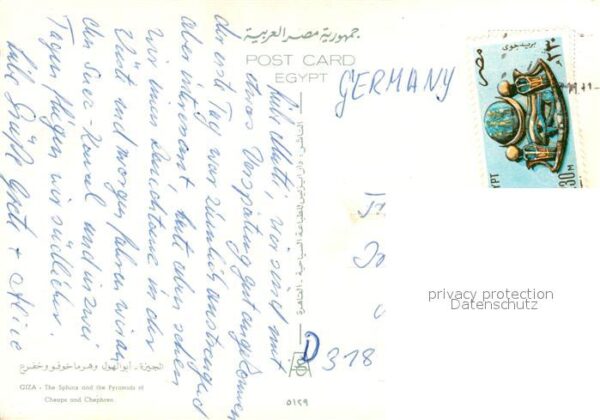 جمهورية مصر العربية
POST CARD
EGYPT
GERMANY
بريد جوى
مصر
٢٣٠
230 M
EGYPT
Liebe Mutti, wir sind mit
etwas Verspätung gut angekommen
der erste Tag war ziemlich anstrengend
aber interessant, heute sehen
wir einen in der
Wüste und morgen fahren wir an
den Suez-Kanal und in zwei
Tagen fliegen wir südlicher.
Liebe Grüße Gret + Alice
D 318
privacy protection
Datenschutz
الجيزة - أبو الهول وهرما خوفو وخفرع
GIZA - The Sphinx and the Pyramids of
Cheops and Chephren
٥١٢٩